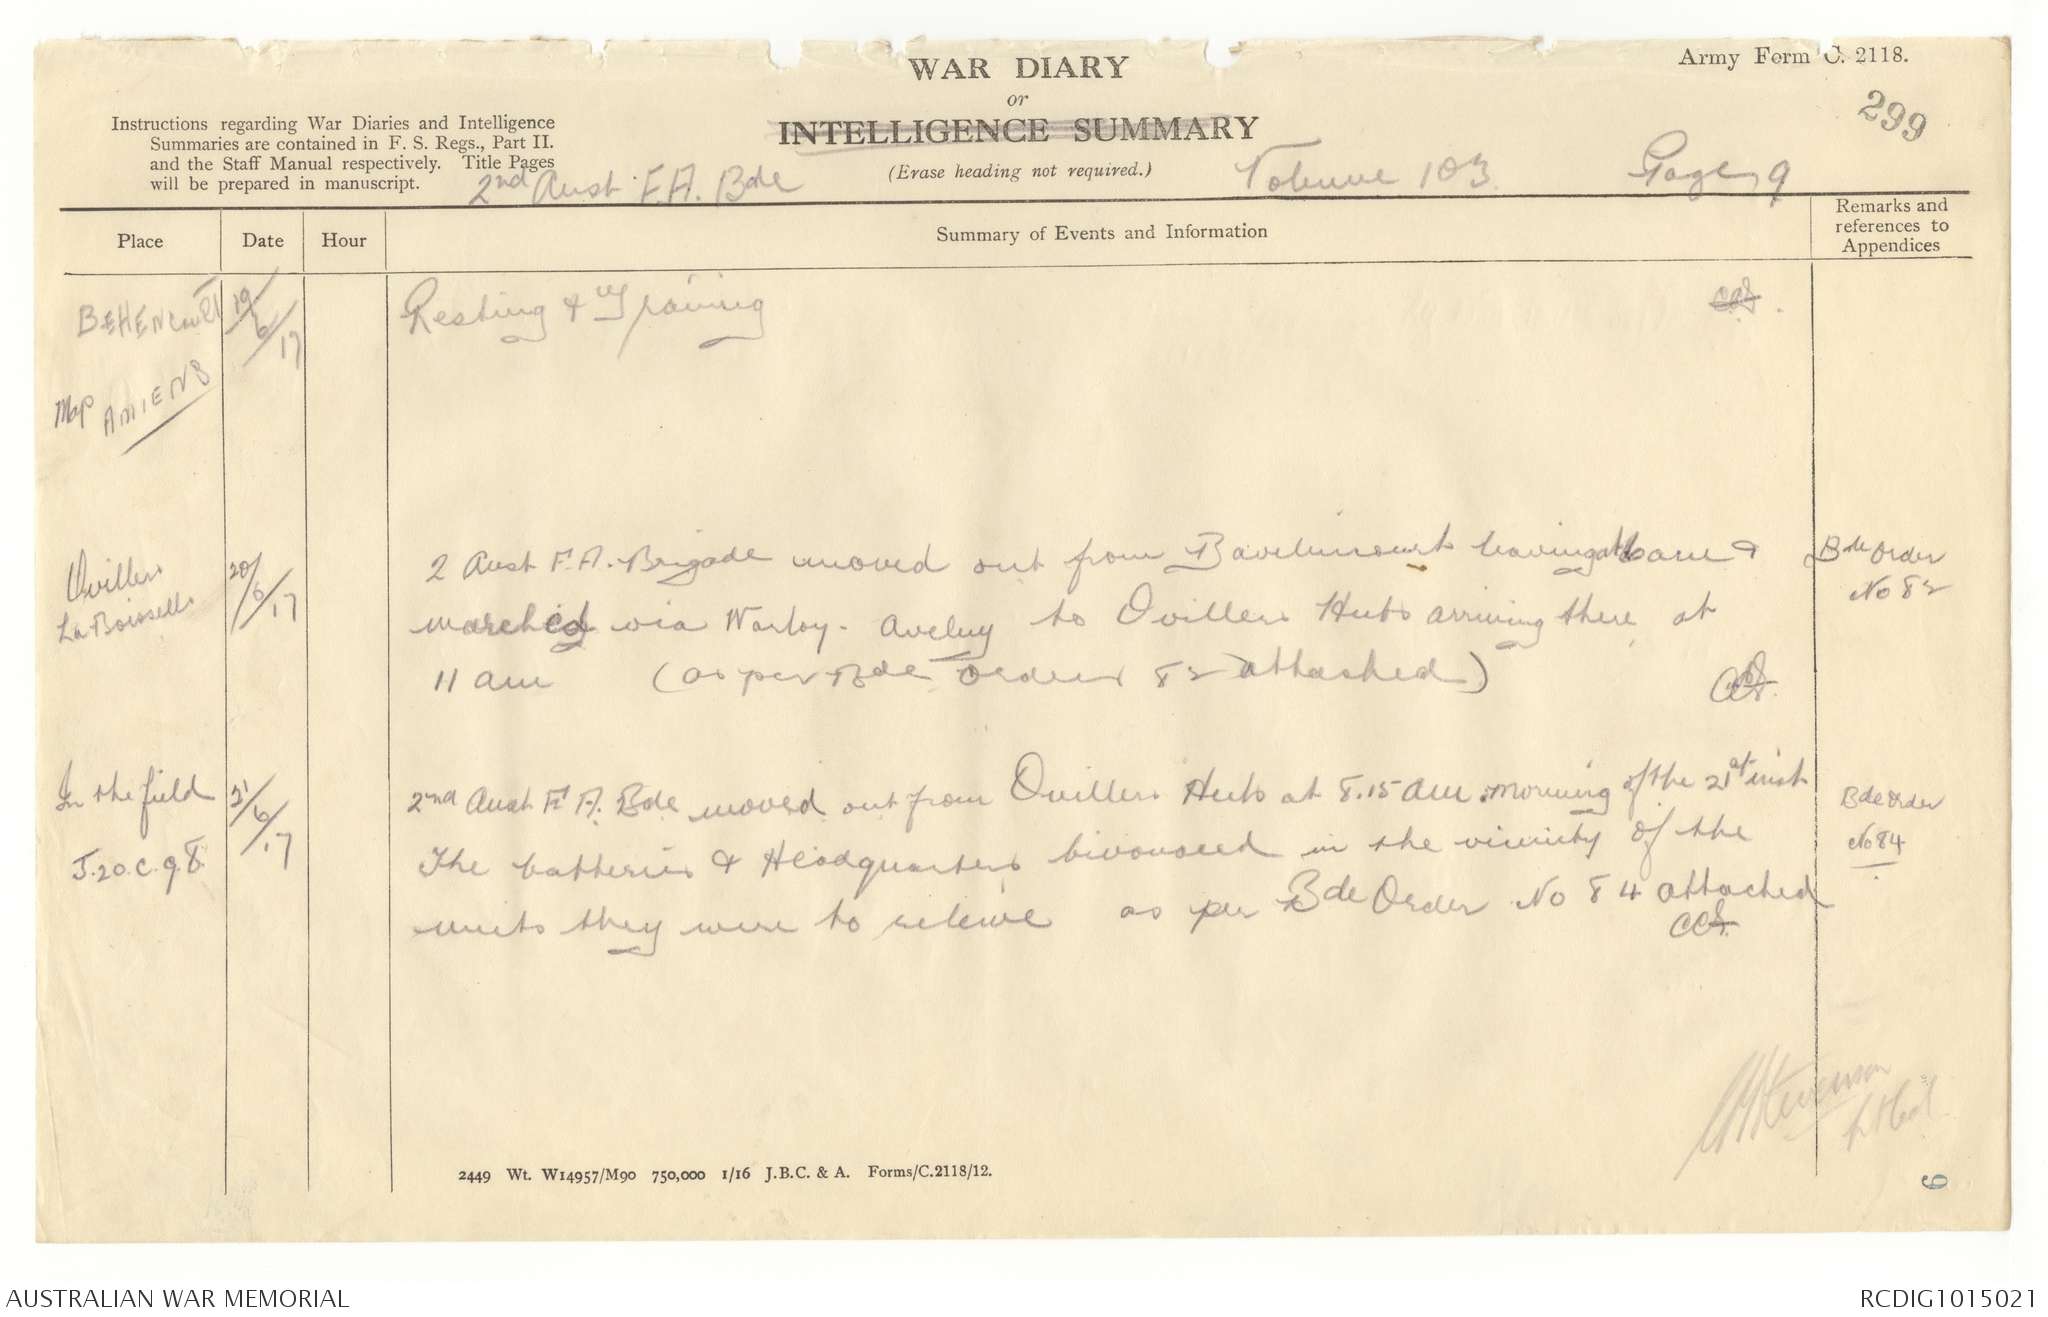 WAR DIARY
or
INTELLIGENCE SUMMARY
(Erase heading not required.)
Army Form C. 2118.
299
Instructions regarding War Diaries and Intelligence
Summaries are contained in F. S. Regs., Part II.
and the Staff Manual respectively. Title Pages
will be prepared in manuscript.
2nd Aust F.A. Bde
Volume 103
Page 9
Place
Date
Hour
Summary of Events and Information
Remarks and
references to
Appendices
BEHENCOURT
Map AMIENS
19/6/17
Resting & Training
CCS.
Ovillers
La Boisselle
20/6/17
2 Aust F.A. Brigade moved out from Bavelincourt leaving at 6 am &
marched via Warloy - Aveluy to Ovillers Huts arriving there at
11 am (as per Bde Order 82 attached)
CCS.
Bde Order
No 82
In the field
J.20.c.9.8.
21/6/17
2nd Aust F.A. Bde moved out from Ovillers Huts at 8.15 am morning of the 21st inst
The batteries & Headquarters bivouaced in the vicinity of the
units they were to releive as per Bde Order No 84 attached
CCS.
Bde Order
No 84
Stevenson
Lt Col
2449 Wt. W14957/M90 750,000 1/16 J.B.C. & A. Forms/C.2118/12.
AUSTRALIAN WAR MEMORIAL
RCDIG1015021